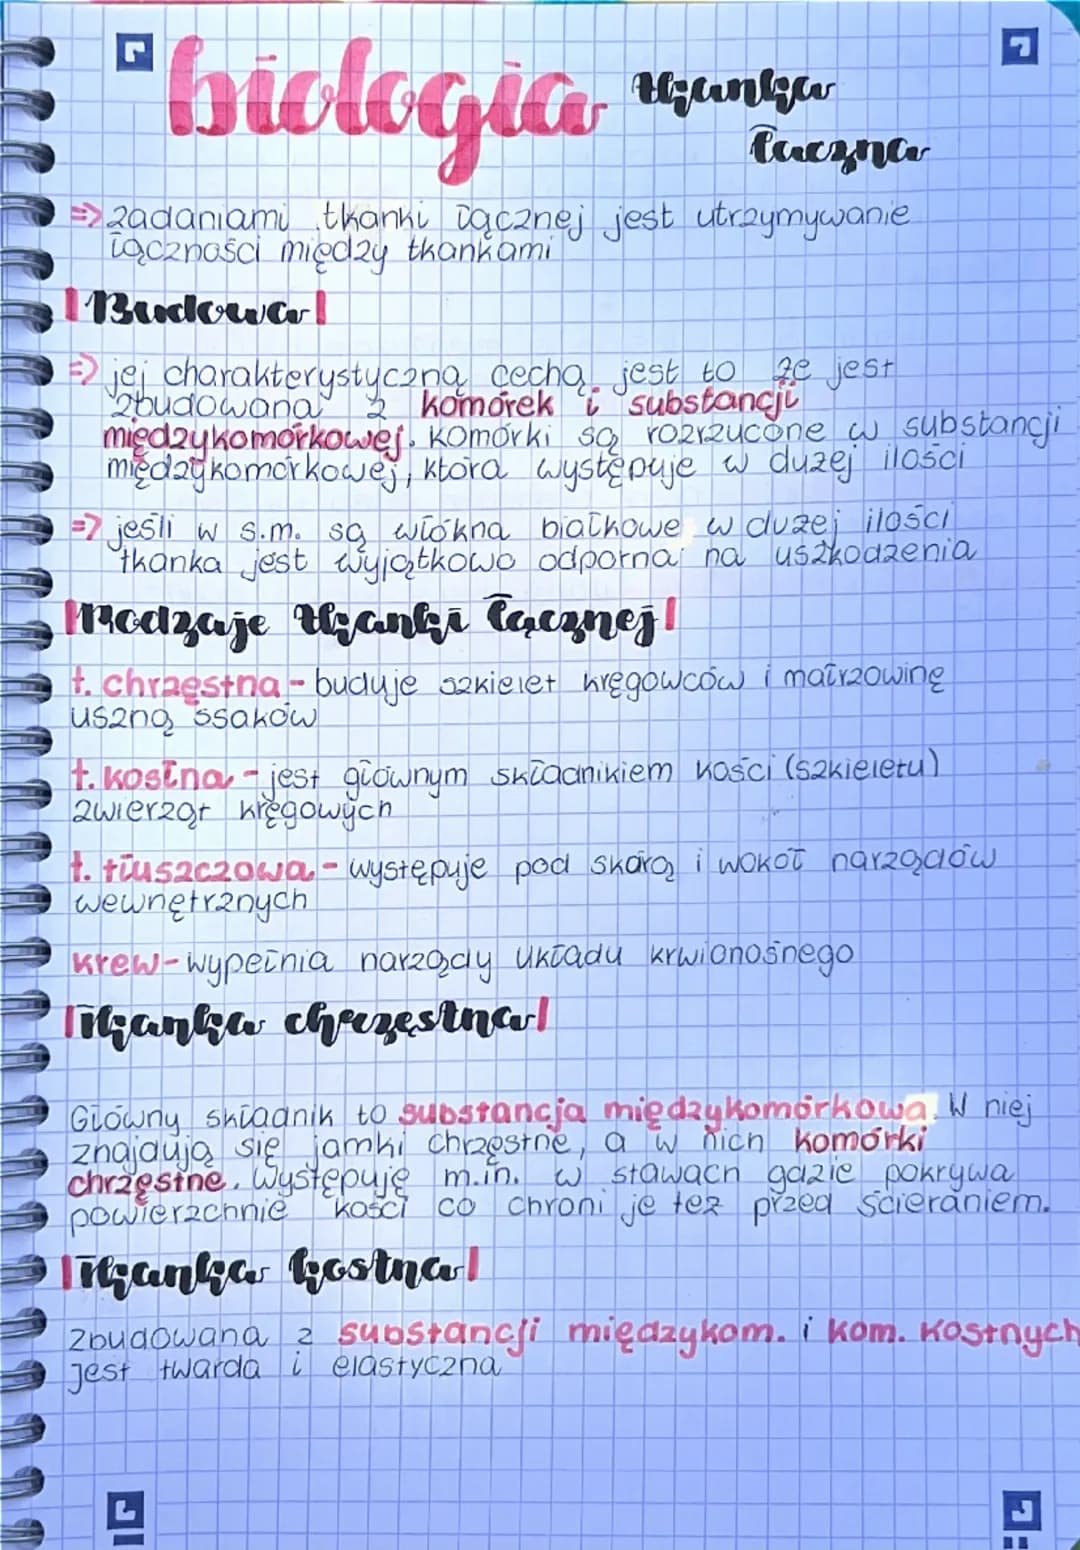 biologia tkanka
łączna
=> zadaniami tkanki łącznej jest utrzymywanie
łączności między tkankami
Budowa
=> jej charakterystyczną cechą jest to że jest
zbudowana z komórek i substancji
międzykomórkowej. Komórki są rozrzucone w substancji
międzykomórkowej, która występuje w dużej ilości
=> jeśli w s.m. są włókna białkowe w dużej ilości
tkanka jest wyjątkowo odporna na uszkodzenia
Rodzaje tkanki łącznej
t. chrzęstna - buduje szkielet kręgowców i małrzowinę
uszną ssaków
t. kostna - jest głównym składnikiem kości (szkieletu)
zwierząt kręgowych
t. tłuszczowa - występuje pod skórą i wokół narządów
wewnętrznych
krew - wypełnia narządy układu krwionośnego
Tkanka chrzęstna
Główny składnik to substancja międzykomórkowa. W niej
znajdują się jamki chrzęstne, a w nich komórki
chrzęstne. Występuję m.in. w stawach gdzie pokrywa
powierzchnie kości co chroni je też przed ścieraniem.
Tkanka kostna
zbudowana z substancji międzykom. i kom. kostnych
jest twarda i elastyczna